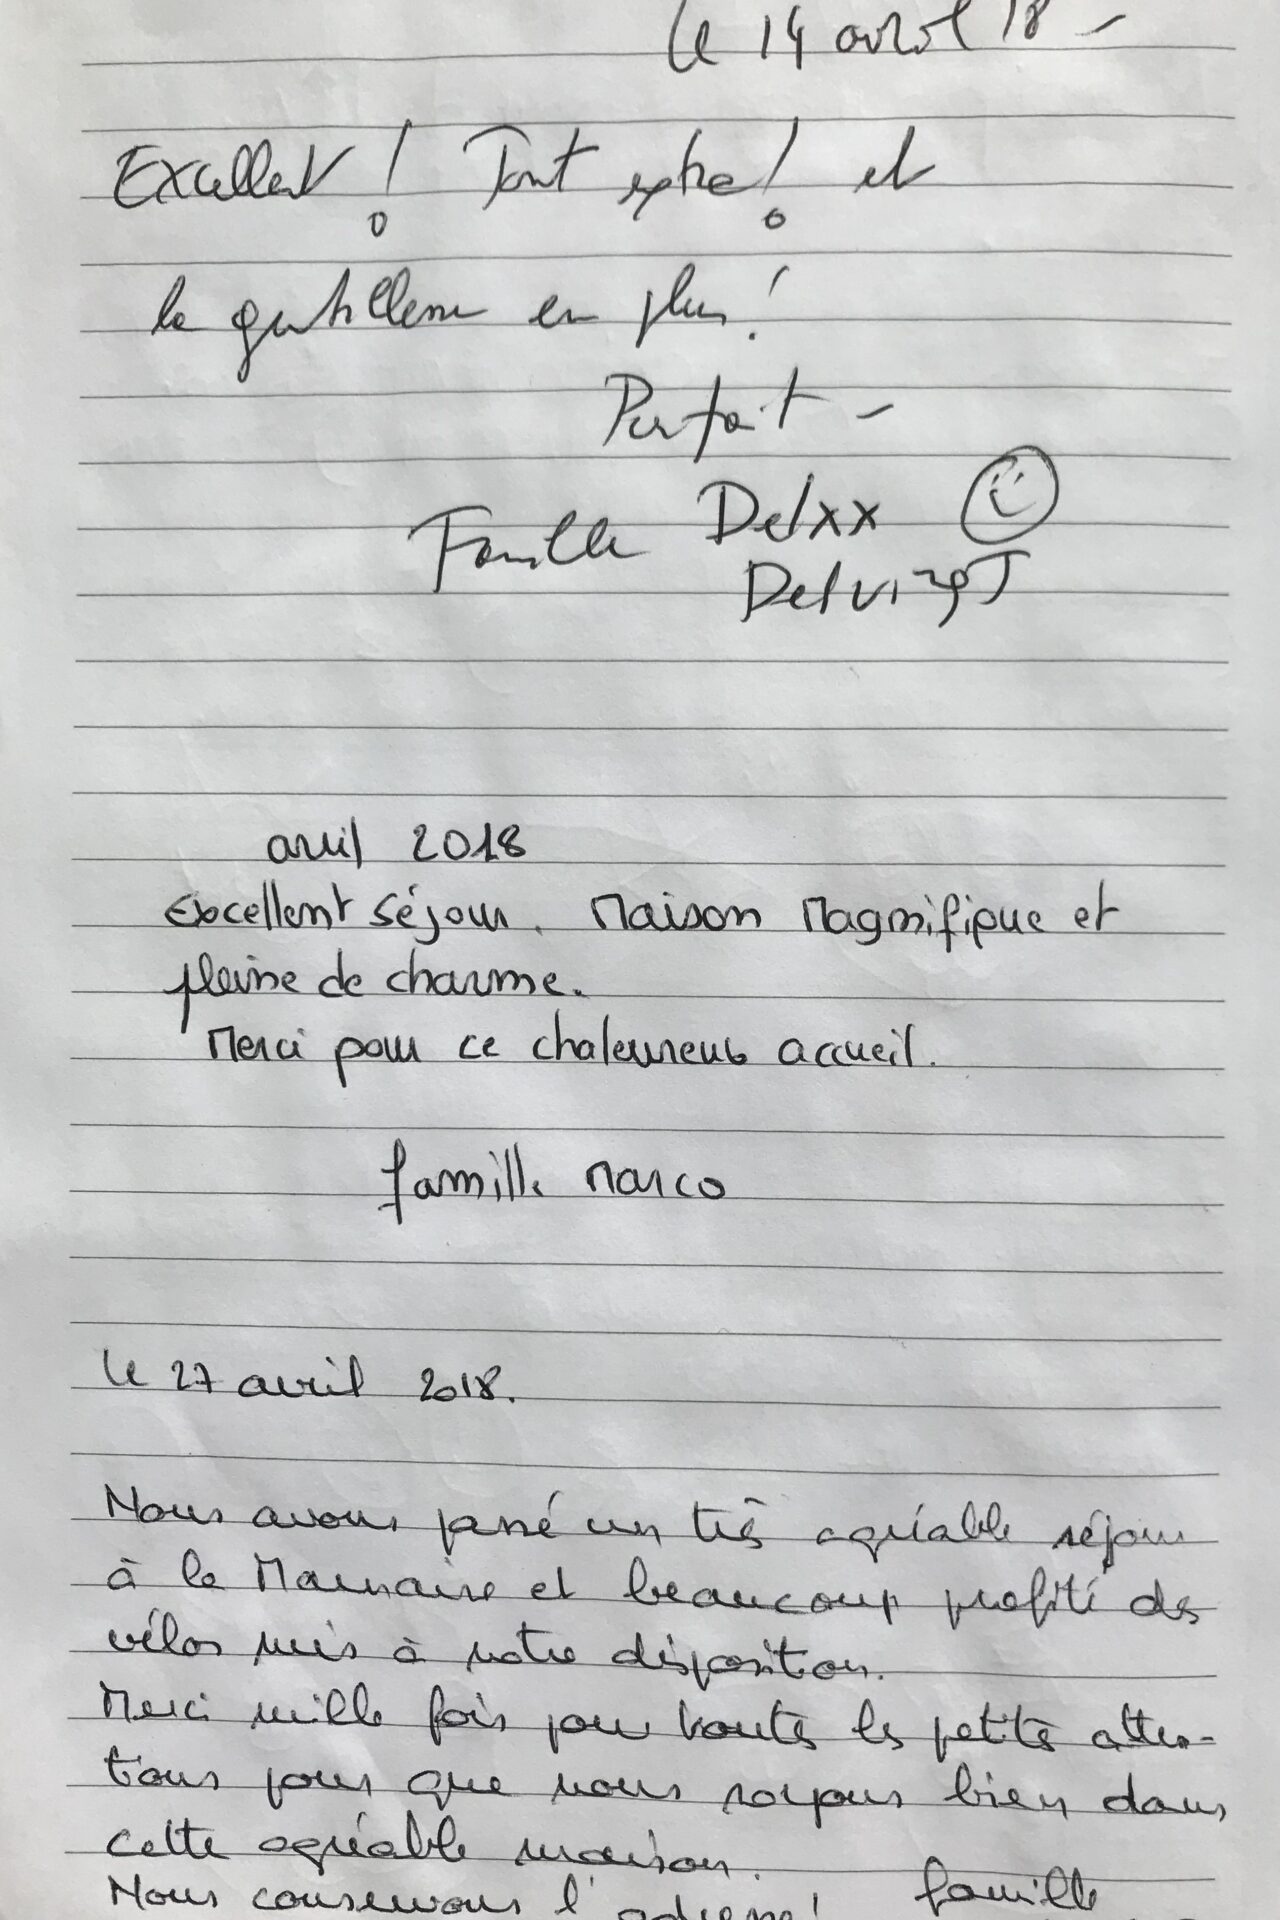 le 14 avril 18 -
Excellent ! Tout extra ! et
la gentillesse en plus !
Parfait -
Famille Delxx
avril 2018
Excellent séjour. Maison Magnifique et
pleine de charme.
Merci pour ce chaleureux accueil.
famille Marco
le 27 avril 2018.
Nous avons passé un très agréable séjour
à la et beaucoup profité des
vélos mis à notre disposition.
Merci mille fois pour toutes les petites atten-
tions pour que nous soyons bien dans
cette agréable maison.
Nous conservons l'adresse ! famille